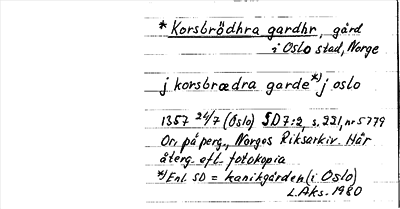 * Korsbrödhra gardhr, gård
i Oslo stad, Norge
j korsbrœdra garde *) j oslo
1357 24/7 (Oslo) SD 7:2, s. 221, nr 5779
Or. på perg., Norges Riksarkiv. Här
återg. eft. fotokopia
*) Enl. SD = kanikgården (i Oslo)
L.Aks. 1980